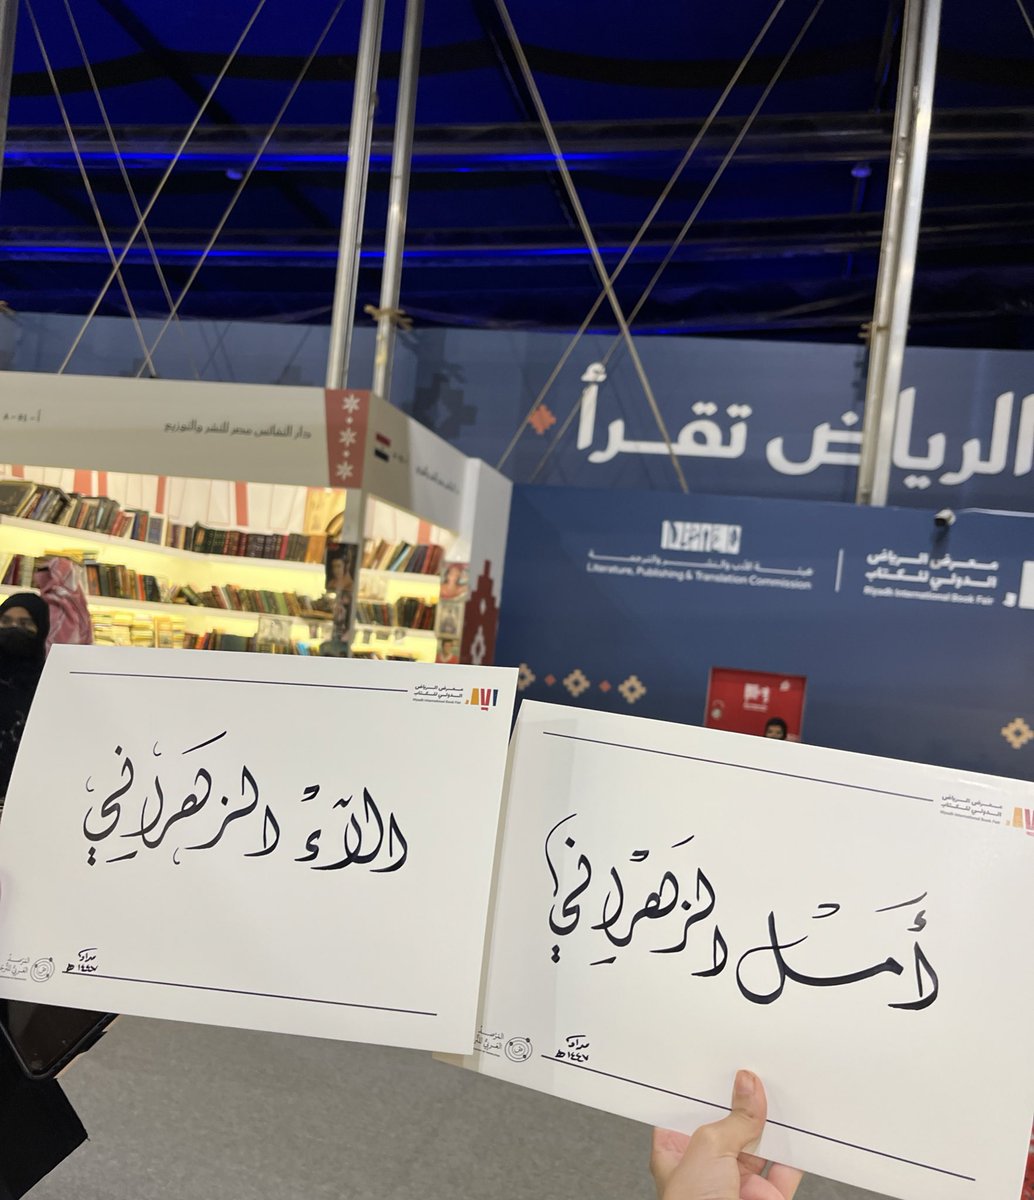 الرياض تقرأ
دار النفائس مصر للنشر والتوزيع
هيئة الأدب والنشر والترجمة
Literature, Publishing & Translation Commission
معرض الرياض
الدولي للكتاب
Riyadh International Book Fair
معرض الرياض
الدولي للكتاب
Riyadh International Book Fair
الآءْ الزهَراني
مداد
١٤٤٧هـ
معرض الرياض
الدولي للكتاب
Riyadh International Book Fair
أَمَلْ الزَهْراني
مداد
١٤٤٧هـ